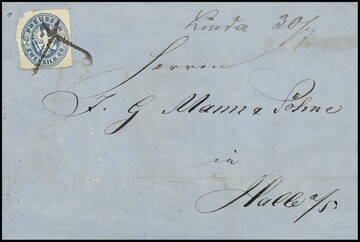 PREUSSEN
ZWEI SILB.GR.
Linda 30/7
Herren
F. G. Mann & Söhne
in
Halle a/S